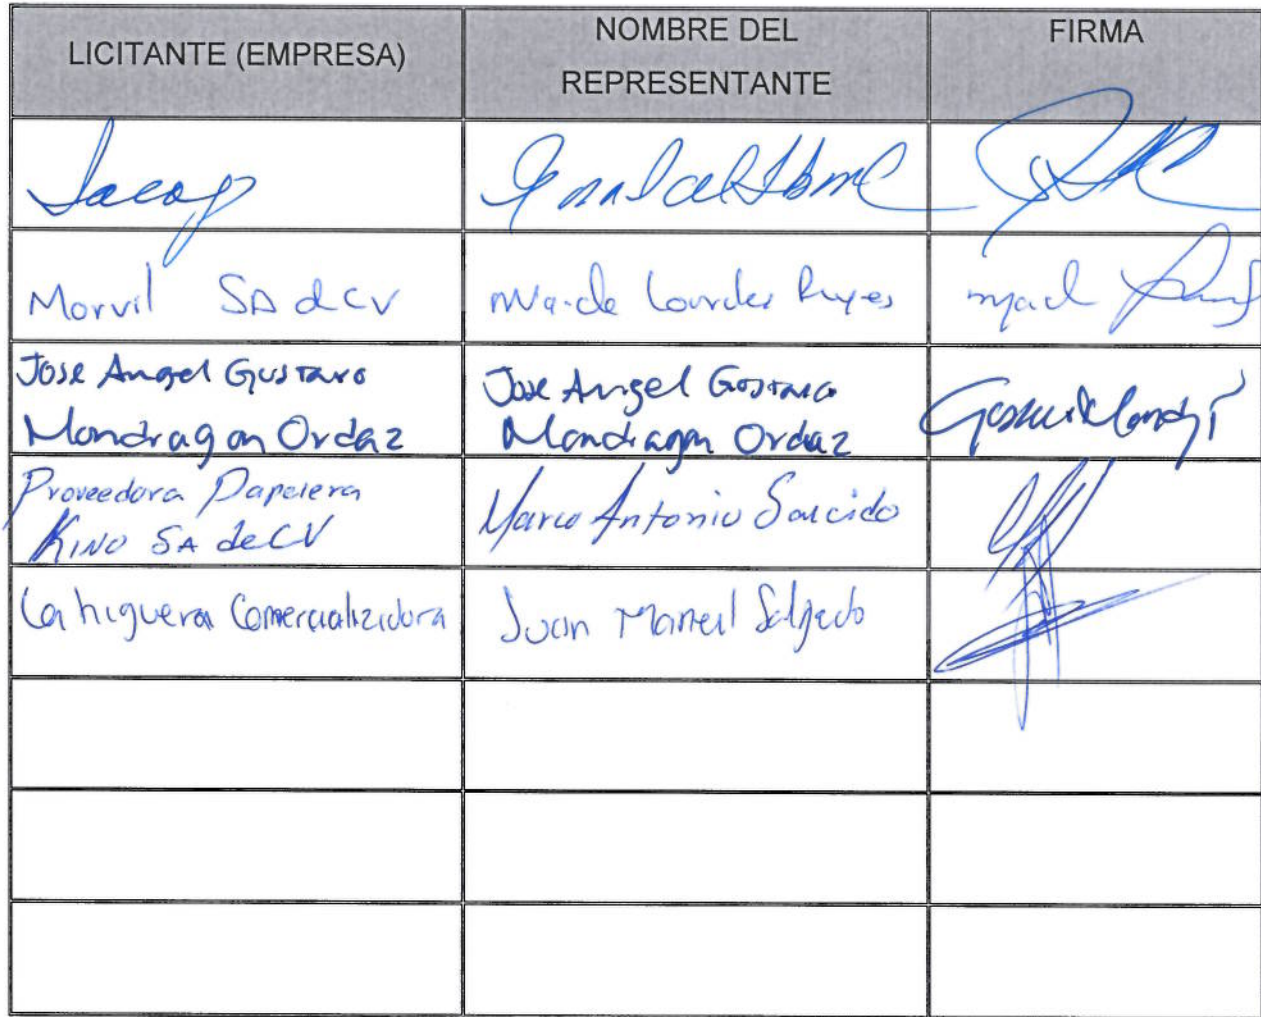 LICITANTE (EMPRESA)
NOMBRE DEL
REPRESENTANTE
FIRMA
Morvil SA de CV
Ma. de Lourdes Reyes
Jose Angel Gustavo
Mondragon Ordaz
Jose Angel Gustavo
Mondragon Ordaz
Proveedora Papelera
KINO SA de CV
Marco Antonio Saucido
La higuera Comercializadora
Juan Manuel Salgado